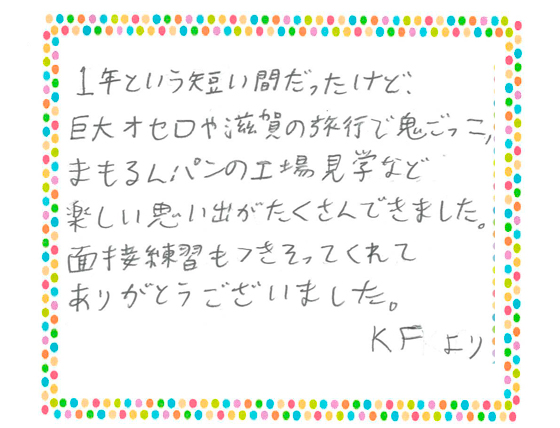 1年という短い間だったけど、
巨大オセロや滋賀の旅行で鬼ごっこ、
まもるんパンの工場見学など
楽しい思い出がたくさんできました。
面接練習もつきそってくれて
ありがとうございました。
KFより